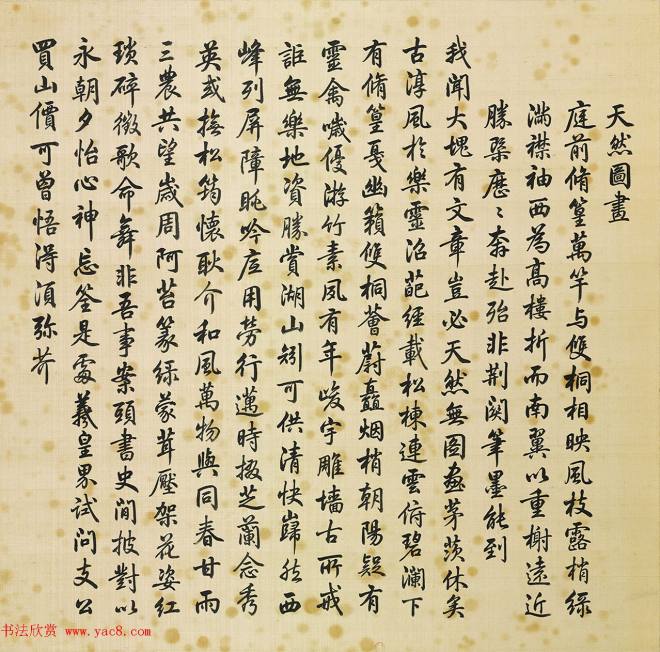 天然圖畫
庭前脩篁萬竿与雙桐相映風枝露梢綠
滿襟袖西為高樓折而南翼以重榭遠近
勝槩歷〻奔赴殆非荊関筆墨能到
我聞大塊有文章豈必天然無圖畫茅茨休矣
古淳風於樂靈沼葩經載松棟連雲俯碧瀾下
有脩篁戛幽籟雙桐薈蔚矗烟梢朝陽疑有
靈禽噦優游竹素夙有年峻宇雕墻古所戒
詎無樂地資勝賞湖山矧可供清快巋然西
峰列屏障眺吟底用勞行邁時掇芝蘭念秀
英或撫松筠懷耿介和風萬物與同春甘雨
三農共望歲周阿苔篆綠蒙茸壓架花姿紅
瑣碎徵歌命舞非吾事案頭書史閒披對以
永朝夕怡心神忘筌是處羲皇界試問支公
買山價可曾悟得須彌芥
书法欣赏 www.yac8.com